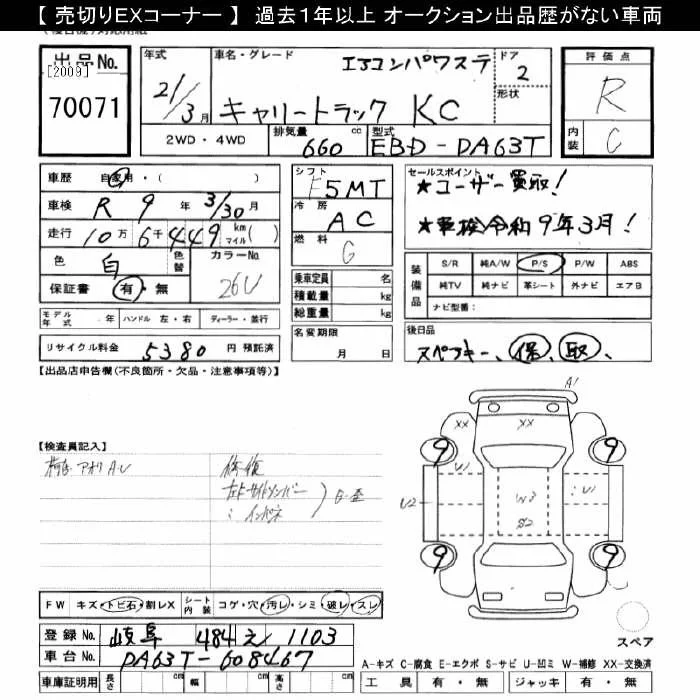 【 売切りEXコーナー 】 過去１年以上 オークション出品歴がない車両
出品No.
[2009]
70071
年式
21/3月
車名・グレード
エアコンパワステ
キャリートラック KC
ドア
2
形状
評価点
R
内装
C
2WD・4WD
排気量
660 cc
型式
EBD-DA63T
車歴 自家用・( )
車検 R 9 年 3/30 月
走行 10万 6千 449 km マイル( )
色 白 色替
カラーNo.
26U
保証書 有・無
シフト
F5MT
冷房
AC
燃料
G
セールスポイント
★ユーザー買取!
★車検令和9年3月!
乗車定員 名
積載量 kg
総重量 kg
装備品
S/R 純A/W P/S P/W ABS
純TV 純ナビ 革シート 外ナビ エアB
ナビ型番：
モデル年式 年 ハンドル 左・右 ディーラー・並行
名変期限
月 日
リサイクル料金 5380 円 預託済
後日品
スペアキー、保、取、
【出品店申告欄(不良箇所・欠品・注意事項等)】
【検査員記入】
アオリ A.U
修復
インパネ
A1
XX XX XX
9 9
U1 U1
U2 W3
S2
9 9
FW キズ・トビ石・割レX シート内装 コゲ・穴・汚レ・シミ・破レ・スレ
スペア
登録No. 岐阜 484 え 1103
車台No. DA63T-608467
A-キズ C-腐食 E-エクボ S-サビ U-凹ミ W-補修 XX-交換済
車庫証明用 長さ cm 幅 cm 高さ cm
工具 有・無 ジャッキ 有・無